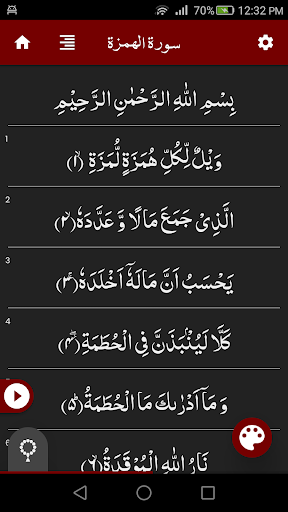 70% 12:32 PM
سورة الهمزة
بِسْمِ اللّٰهِ الرَّحْمٰنِ الرَّحِيْمِ
1
وَيْلٌ لِّكُلِّ هُمَزَةٍ لُّمَزَةٍ ﴿۱﴾
2
الَّذِىْ جَمَعَ مَالًا وَّ عَدَّدَهٗ ﴿۲﴾
3
يَحْسَبُ اَنَّ مَالَهٗۤ اَخْلَدَهٗ ﴿۳﴾
4
كَلَّا لَيُنْۢبَذَنَّ فِى الْحُطَمَةِ ﴿۴﴾
وَ مَاۤ اَدْرٰىكَ مَا الْحُطَمَةُ ﴿۵﴾
6
نَارُ اللّٰهِ الْمُوْقَدَةُ ﴿۶﴾